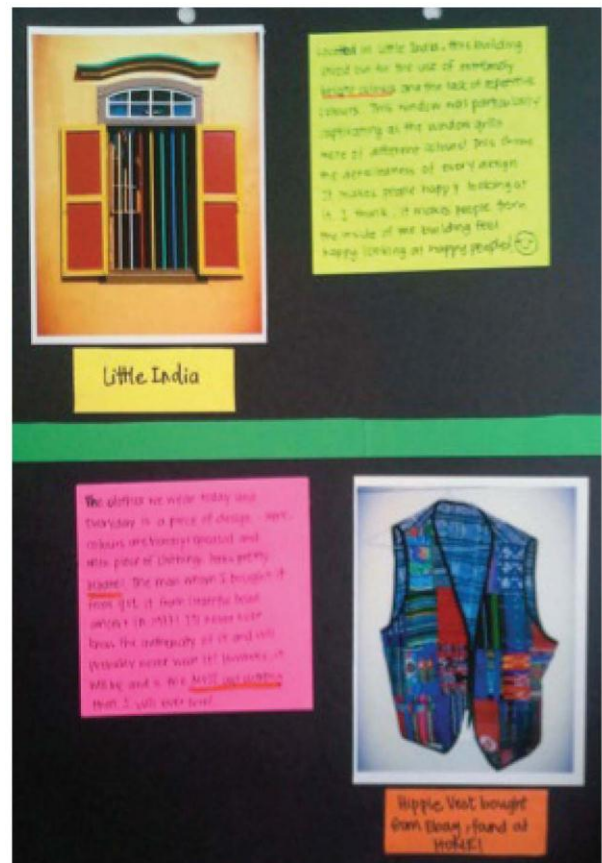 Located in Little India, this building
out for the use of extremely
bright colours and the lack of repetitive
colours. This window was particularly
captivating as the window grills
were of different colours! This shows
the of every design
It makes people happy looking at
it. I think, it makes people from
the inside of the building feel
happy looking at happy people!
Little India
The clothes we wear today and
everyday is a piece of design. Here,
colours are heavily repeated and
this piece of clothing looks pretty
The man whom I bought it
from got it from Grateful Dead
concert in 1977! I'll never ever
know the authenticity of it and will
probably never wear it! However, it
will be and is the
that I will ever love!
Hippie Vest bought
from Ebay, found at
HOME!